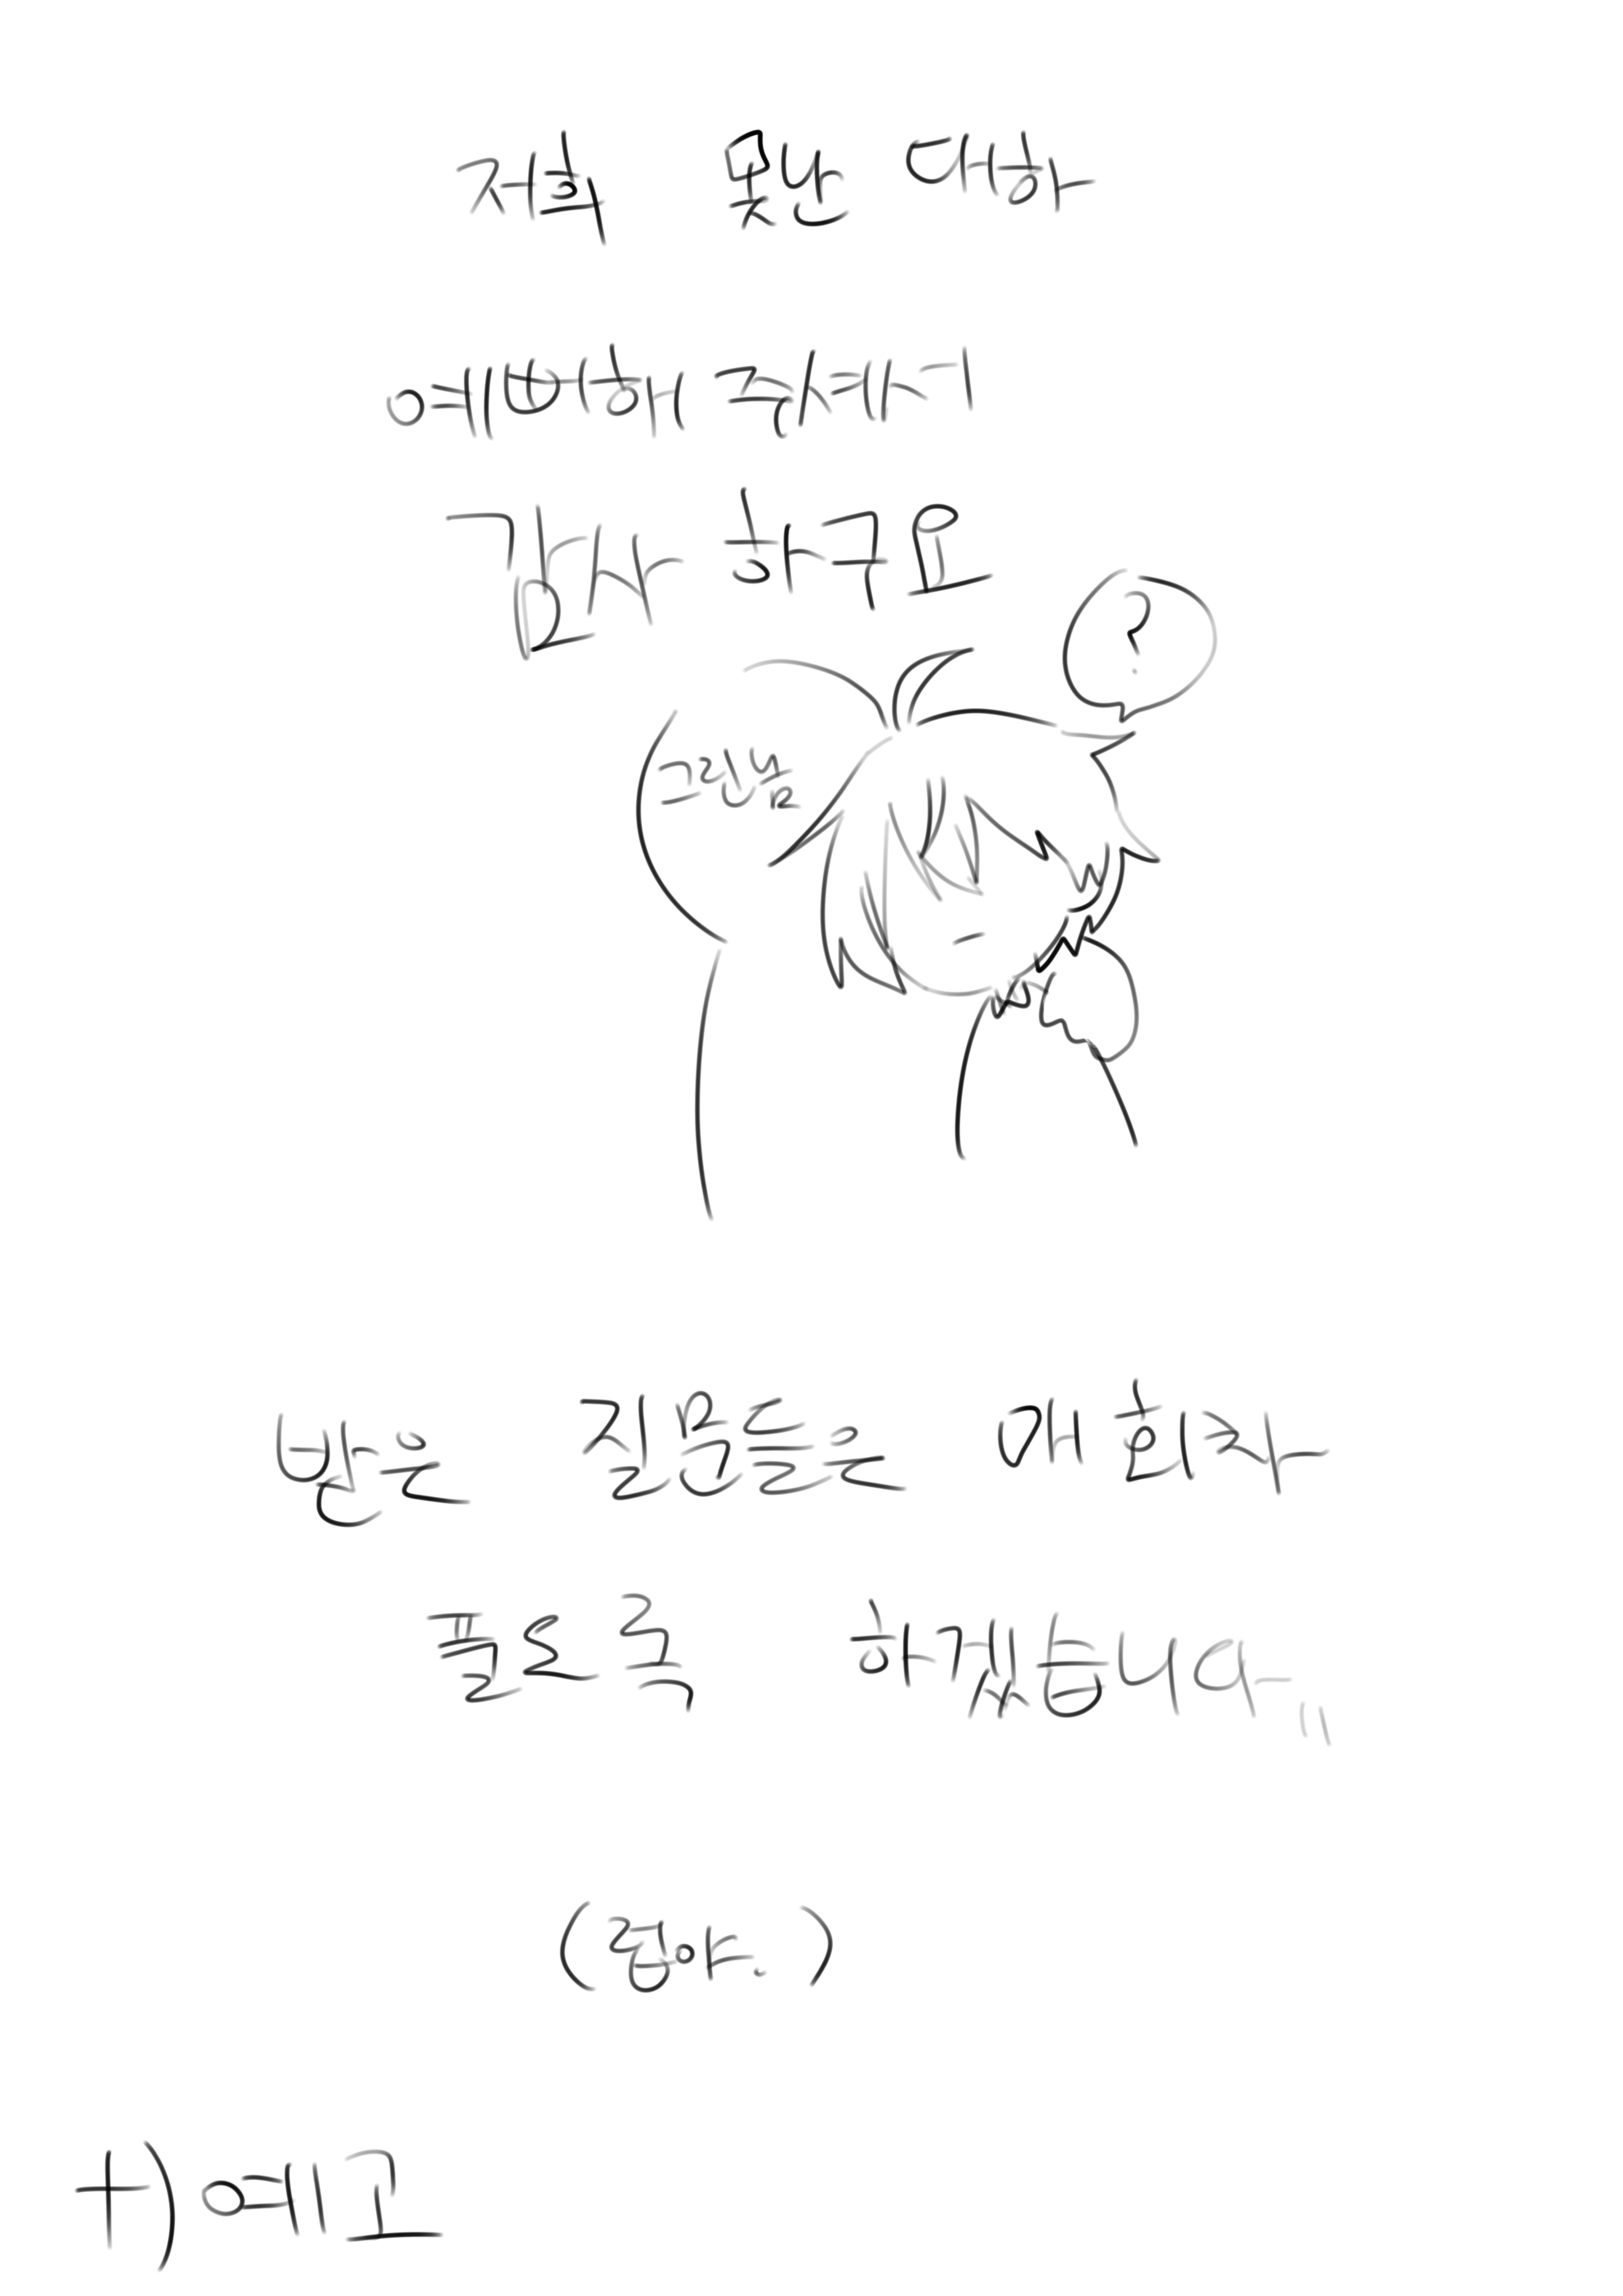 저희 못난 여아
예뻐해 주셔서
감사 하구요
?
그린놈
받은 질문들은 매화로
풀도록 하겠습니다..
(럽야.)
+)예고